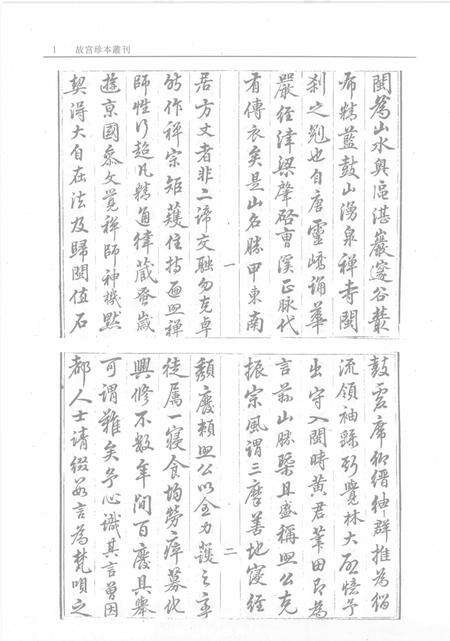 1 故宫珍本叢刊
閩為山水奧區湛巖邃谷叢
布精藍鼓山湧泉禪寺閩
剎之冠也自唐靈嶠誦華
嚴經律梁肇啓曹溪正脉代
有傳衣矣是山名勝甲東南
居方丈者非二諦交融勿克卓
然作禪宗矩矱住持遍照禪
師性行超凡精通律蔵蚤歲
遊京國叅文覺禪師神機默
契得大自在法及歸閩值石
一
鼓虚席仰缙紳群推為緇
流領袖踞 覺林大 憶予
出守入閩時黄君莘田即為
言茲山勝槩且盛稱照公克
振宗風謂三摩善地寝經
頽廢頼照公以全力護之率
徒属一寝食均勞瘁募化
興修不數年間百廢具舉
可謂難矣予心識其言曾因
都人士请綴數言為梵唄之
二